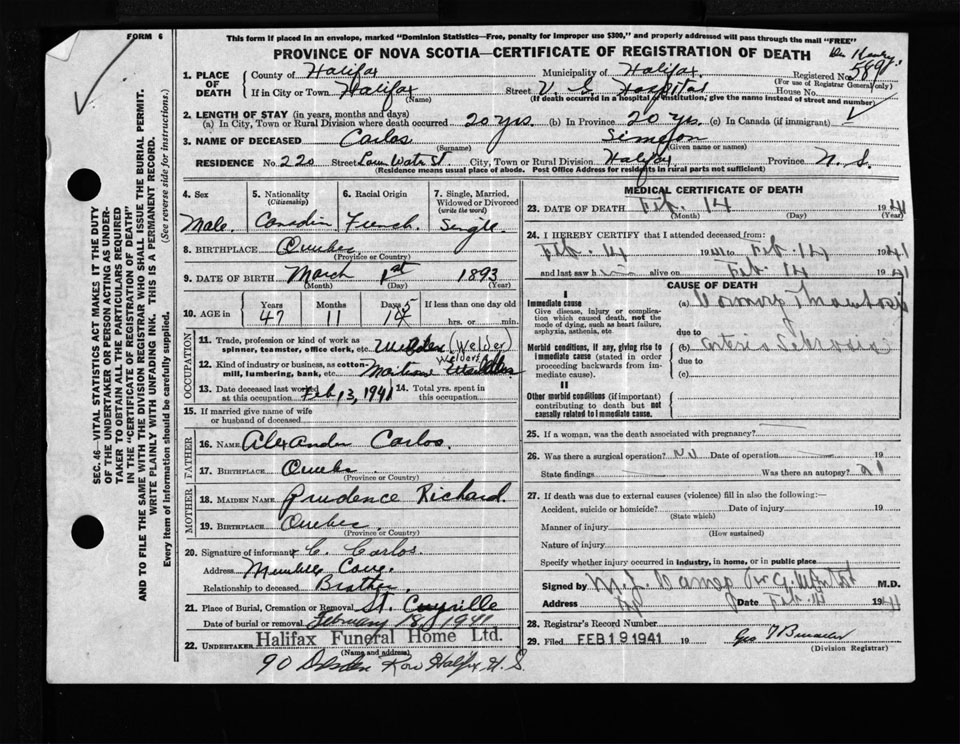 FORM 6
This form if placed in an envelope, marked "Dominion Statistics—Free, penalty for improper use $300," and properly addressed will pass through the mail "FREE"
PROVINCE OF NOVA SCOTIA—CERTIFICATE OF REGISTRATION OF DEATH
1. PLACE OF DEATH
County of Halifax Municipality of Halifax. Registered No. 589
(For use of Registrar General only)
If in City or Town Halifax (Name) Street V. G. Hospital House No.
(If death occurred in a hospital or institution, give the name instead of street and number)
2. LENGTH OF STAY (in years, months and days)
(a) In City, Town or Rural Division where death occurred 20 yrs. (b) In Province 20 yrs. (c) In Canada (if immigrant)
3. NAME OF DECEASED Carlos (Surname) Simeon (Given name or names)
RESIDENCE No. 220 Street Low Water St. City, Town or Rural Division Halifax Province N. S.
(Residence means usual place of abode. Post Office Address for residents in rural parts not sufficient)
4. Sex Male.
5. Nationality (Citizenship) Canadin
6. Racial Origin French.
7. Single, Married, Widowed or Divorced (write the word) Single.
8. BIRTHPLACE Quebec (Province or Country)
9. DATE OF BIRTH March (Month) 1st (Day) 1893 (Year)
10. AGE in Years 47 Months 11 Days If less than one day old hrs. or min.
OCCUPATION
11. Trade, profession or kind of work as spinner, teamster, office clerk, etc. (Welder)
12. Kind of industry or business, as cotton-mill, lumbering, bank, etc.
13. Date deceased last worked at this occupation Feb 13, 1941 14. Total yrs. spent in this occupation
15. If married give name of wife or husband of deceased
FATHER
16. NAME Alexander Carlos.
17. BIRTHPLACE Quebec (Province or Country)
MOTHER
18. MAIDEN NAME Prudence Richard.
19. BIRTHPLACE Quebec. (Province or Country)
20. Signature of informant C. Carlos.
Address
Relationship to deceased Brother
21. Place of Burial, Cremation or Removal St.
Date of burial or removal February 18 1941
22. UNDERTAKER Halifax Funeral Home Ltd.
(Name and address)
90 Row Halifax, N. S.
MEDICAL CERTIFICATE OF DEATH
23. DATE OF DEATH Feb. 14 1941
(Month) (Day) (Year)
24. I HEREBY CERTIFY that I attended deceased from:
Feb. 14 1941 to Feb. 14 1941
and last saw him alive on Feb 14 1941
CAUSE OF DEATH
I
Immediate cause
Give disease, injury or complication which caused death, not the mode of dying, such as heart failure, asphyxia, asthenia, etc
(a) Thrombosis
due to
Morbid conditions, if any, giving rise to immediate cause (stated in order proceeding backwards from immediate cause).
(b)
due to
(c)
II
Other morbid conditions (if important) contributing to death but not causally related to immediate cause.
25. If a woman, was the death associated with pregnancy?
26. Was there a surgical operation? No Date of operation 19
State findings Was there an autopsy?
27. If death was due to external causes (violence) fill in also the following:—
Accident, suicide or homicide? Date of injury 19
(State which)
Manner of injury
(How sustained)
Nature of injury
Specify whether injury occurred in industry, in home, or in public place
Signed by M.D.
Address Date Feb. 14 1941
28. Registrar's Record Number
29. Filed FEB 19 1941 19
(Division Registrar)
SEC. 46—VITAL STATISTICS ACT MAKES IT THE DUTY
OF THE UNDERTAKER OR PERSON ACTING AS UNDER-
TAKER TO OBTAIN ALL THE PARTICULARS REQUIRED
IN THE "CERTIFICATE OF REGISTRATION OF DEATH"
AND TO FILE THE SAME WITH THE DIVISION REGISTRAR WHO SHALL ISSUE THE BURIAL PERMIT.
WRITE PLAINLY WITH UNFADING INK. THIS IS A PERMANENT RECORD.
Every item of information should be carefully supplied. (See reverse side for instructions.)